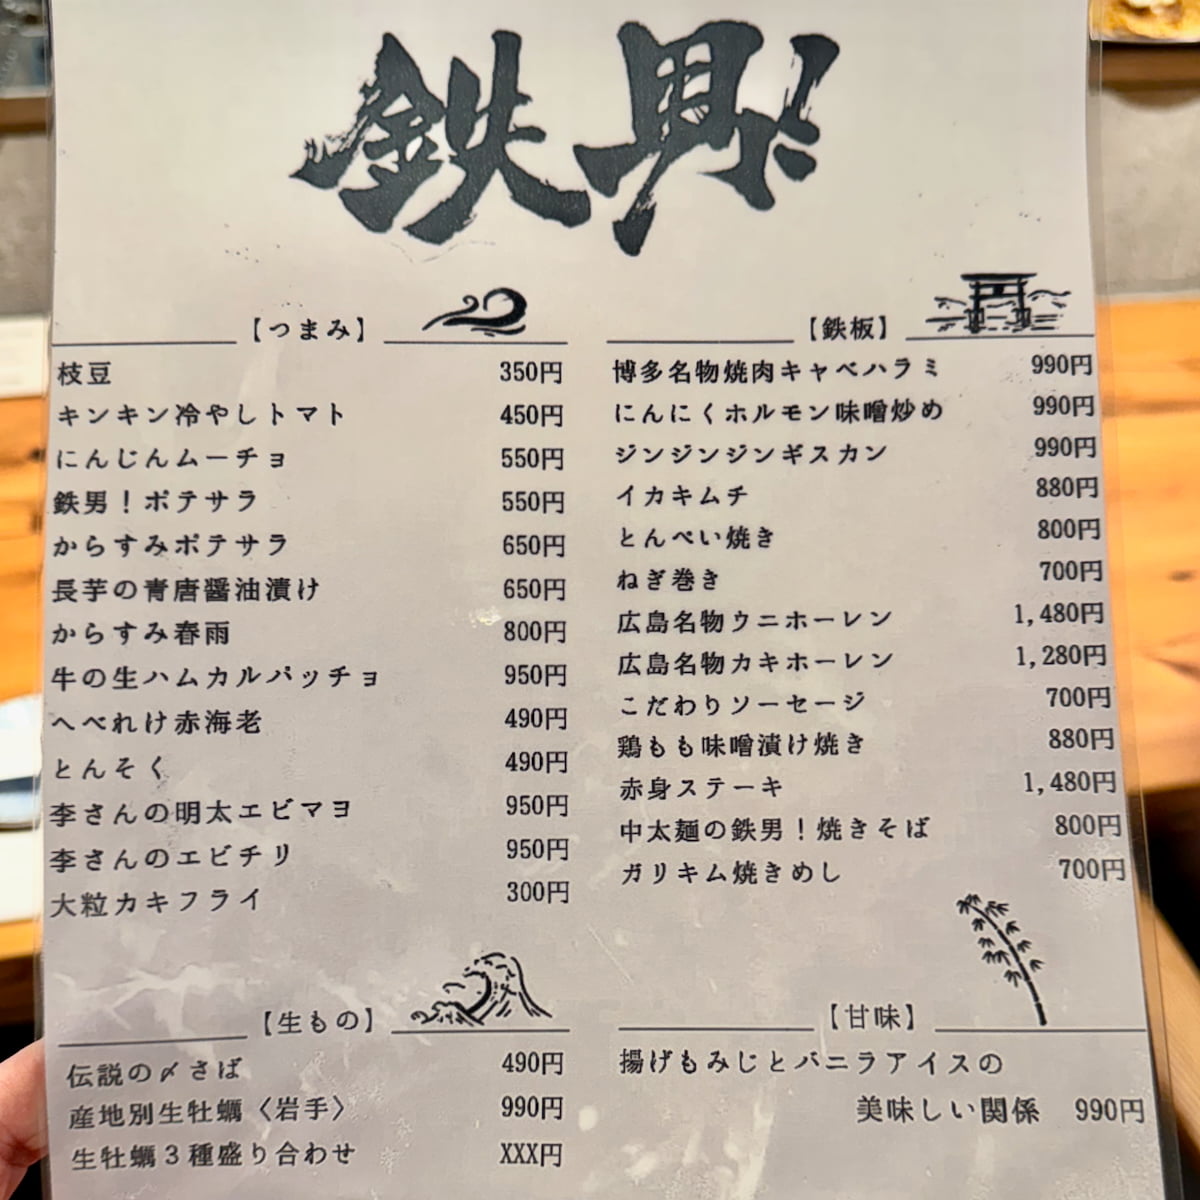 鉄男!
【つまみ】
枝豆 350円
キンキン冷やしトマト 450円
にんじんムーチョ 550円
鉄男！ポテサラ 550円
からすみポテサラ 650円
長芋の青唐醤油漬け 650円
からすみ春雨 800円
牛の生ハムカルパッチョ 950円
へべれけ赤海老 490円
とんそく 490円
李さんの明太エビマヨ 950円
李さんのエビチリ 950円
大粒カキフライ 300円
【生もの】
伝説の〆さば 490円
産地別生牡蠣〈岩手〉 990円
生牡蠣３種盛り合わせ XXX円
【鉄板】
博多名物焼肉キャベハラミ 990円
にんにくホルモン味噌炒め 990円
ジンジンジンギスカン 990円
イカキムチ 880円
とんぺい焼き 800円
ねぎ巻き 700円
広島名物ウニホーレン 1,480円
広島名物カキホーレン 1,280円
こだわりソーセージ 700円
鶏もも味噌漬け焼き 880円
赤身ステーキ 1,480円
中太麺の鉄男！焼きそば 800円
ガリキム焼きめし 700円
【甘味】
揚げもみじとバニラアイスの
美味しい関係 990円